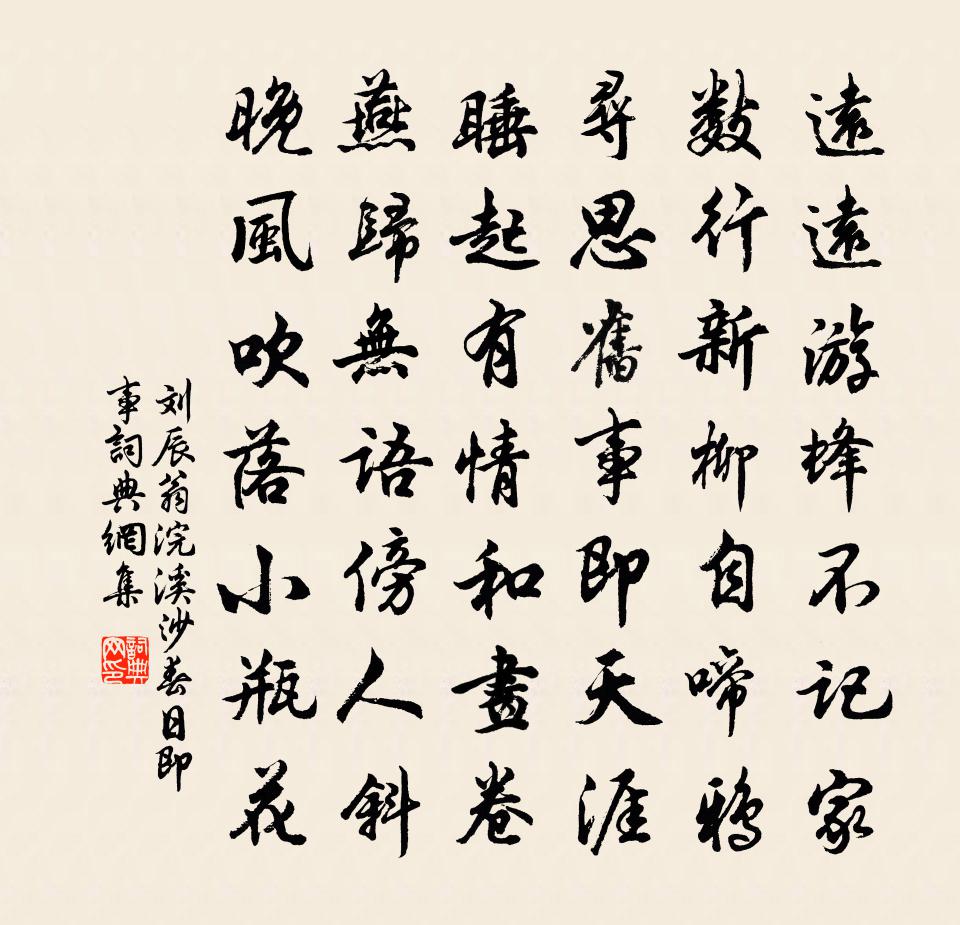 遠遠游蜂不記家
數行新柳自啼鴉
尋思舊事即天涯
睡起有情和畫卷
燕歸無語傍人斜
晚風吹落小瓶花
刘辰翁浣溪沙春日即
事詞典網集
詞典网印